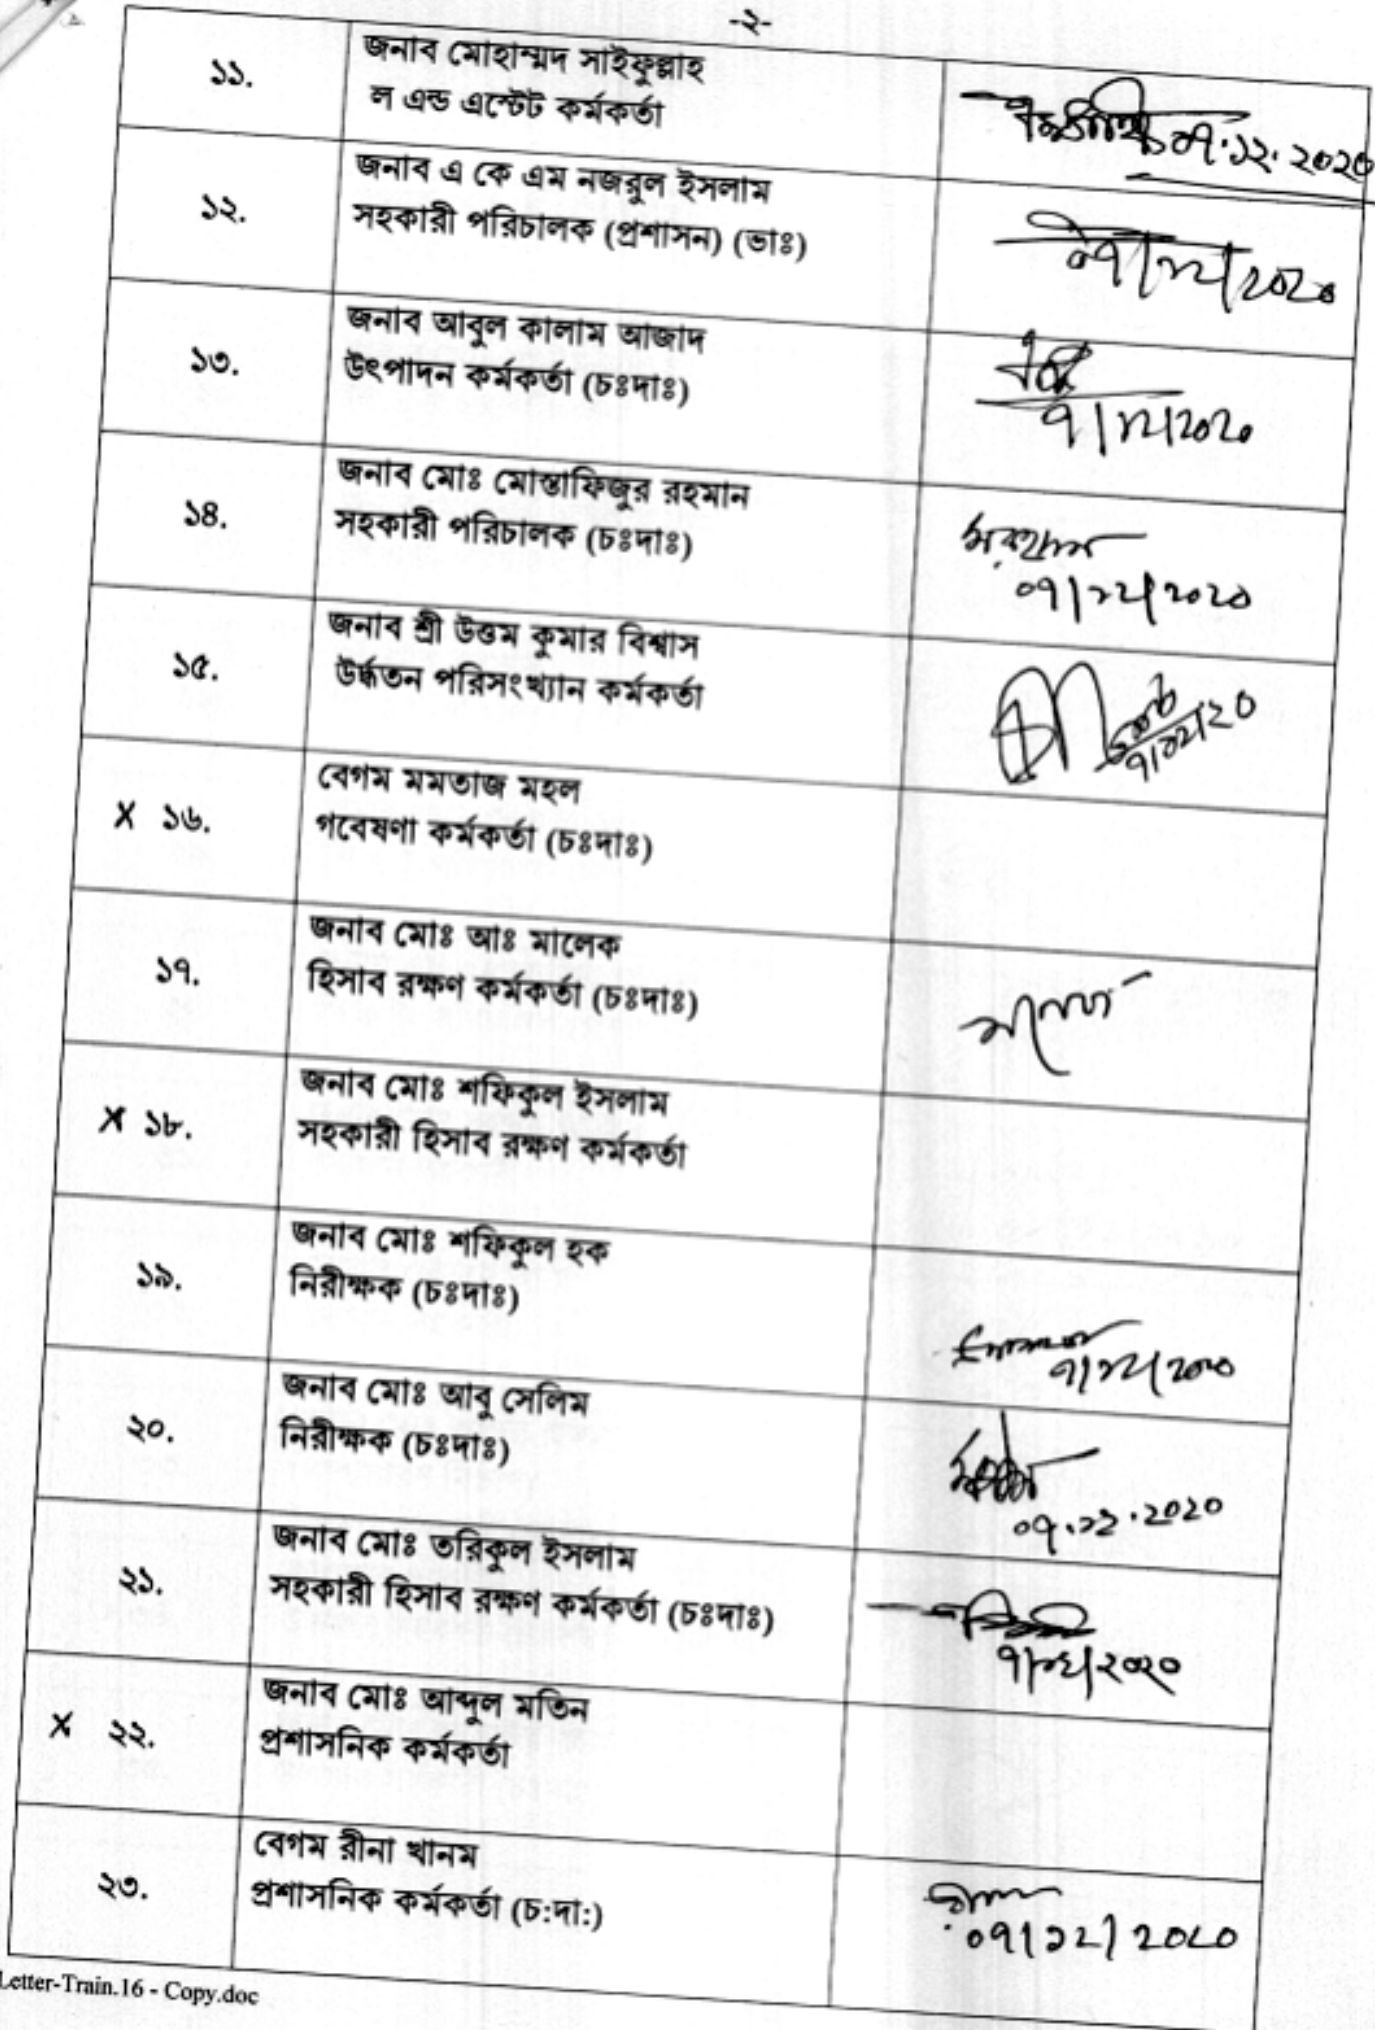 -২-
১১.
জনাব মোহাম্মদ সাইফুল্লাহ
ল এন্ড এস্টেট কর্মকর্তা
০৭.১২.২০২০
১২.
জনাব এ কে এম নজরুল ইসলাম
সহকারী পরিচালক (প্রশাসন) (ভাঃ)
০৭/১২/২০২০
১৩.
জনাব আবুল কালাম আজাদ
উৎপাদন কর্মকর্তা (চঃদাঃ)
৭/১২/২০২০
১৪.
জনাব মোঃ মোস্তাফিজুর রহমান
সহকারী পরিচালক (চঃদাঃ)
০৭/১২/২০২০
১৫.
জনাব শ্রী উত্তম কুমার বিশ্বাস
উর্দ্ধতন পরিসংখ্যান কর্মকর্তা
৭/১২/২০
X ১৬.
বেগম মমতাজ মহল
গবেষণা কর্মকর্তা (চঃদাঃ)
১৭.
জনাব মোঃ আঃ মালেক
হিসাব রক্ষণ কর্মকর্তা (চঃদাঃ)
X ১৮.
জনাব মোঃ শফিকুল ইসলাম
সহকারী হিসাব রক্ষণ কর্মকর্তা
১৯.
জনাব মোঃ শফিকুল হক
নিরীক্ষক (চঃদাঃ)
৭/১২/২০২০
২০.
জনাব মোঃ আবু সেলিম
নিরীক্ষক (চঃদাঃ)
০৭.১২.২০২০
২১.
জনাব মোঃ তরিকুল ইসলাম
সহকারী হিসাব রক্ষণ কর্মকর্তা (চঃদাঃ)
৭/১২/২০২০
X ২২.
জনাব মোঃ আব্দুল মতিন
প্রশাসনিক কর্মকর্তা
২৩.
বেগম রীনা খানম
প্রশাসনিক কর্মকর্তা (চ:দা:)
০৭/১২/২০২০
Letter-Train.16 - Copy.doc